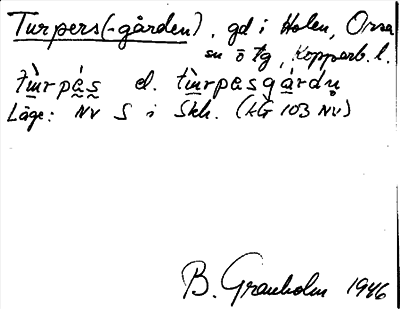 Turpers(-gården), gd i Holen, Orsa
sn ö tg, Kopparb. l.
tùrpàs el. tùrpasgá̀rdn̥
Läge: NV S i Skh. (KG 103 NV)
B. Granholm 1946